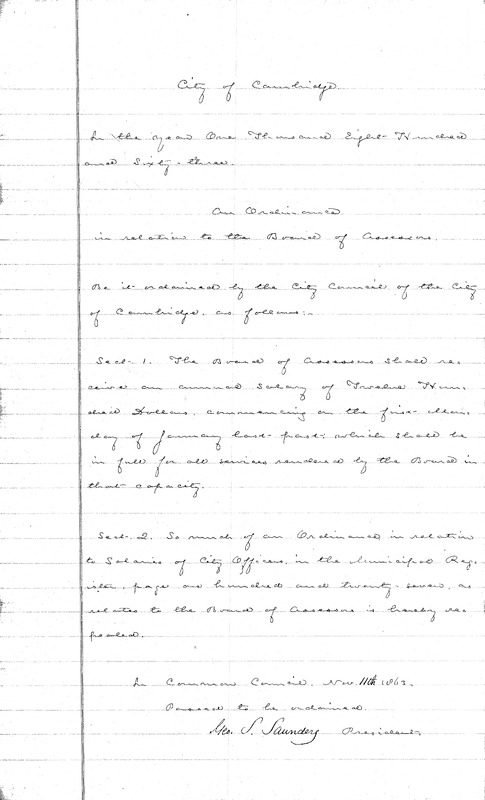 City of Cambridge.
In the year One Thousand Eight Hundred
and Sixty-three.
An Ordinance
in relation to the Board of Assessors.
Be it ordained by the City Council of the City
of Cambridge, as follows:-
Sect. 1. The Board of Assessors shall re-
ceive an annual salary of Twelve Hun-
dred Dollars, commencing on the first Mon-
day of January last past; which shall be
in full for all services rendered by the Board in
that capacity.
Sect. 2. So much of an Ordinance in relation
to Salaries of City Officers, in the Municipal Reg-
ister, page one hundred and twenty-seven, as
relates to the Board of Assessors is hereby re-
pealed.
In Common Council. Nov. 11th 1863.
Passed to be ordained.
Geo. S. Saunders President.